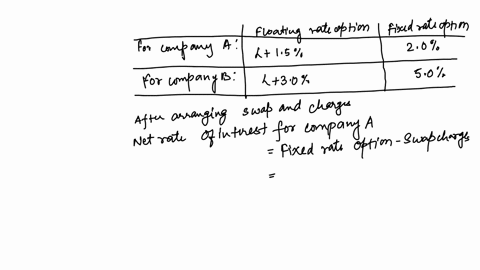 Floating rate option Fixed rate option
For company A: L+1.5% 2.0%
For company B: L+3.0% 5.0%
After arranging swap and charges
Net rate of interest for company A
= Fixed rate option - Swap charges
=